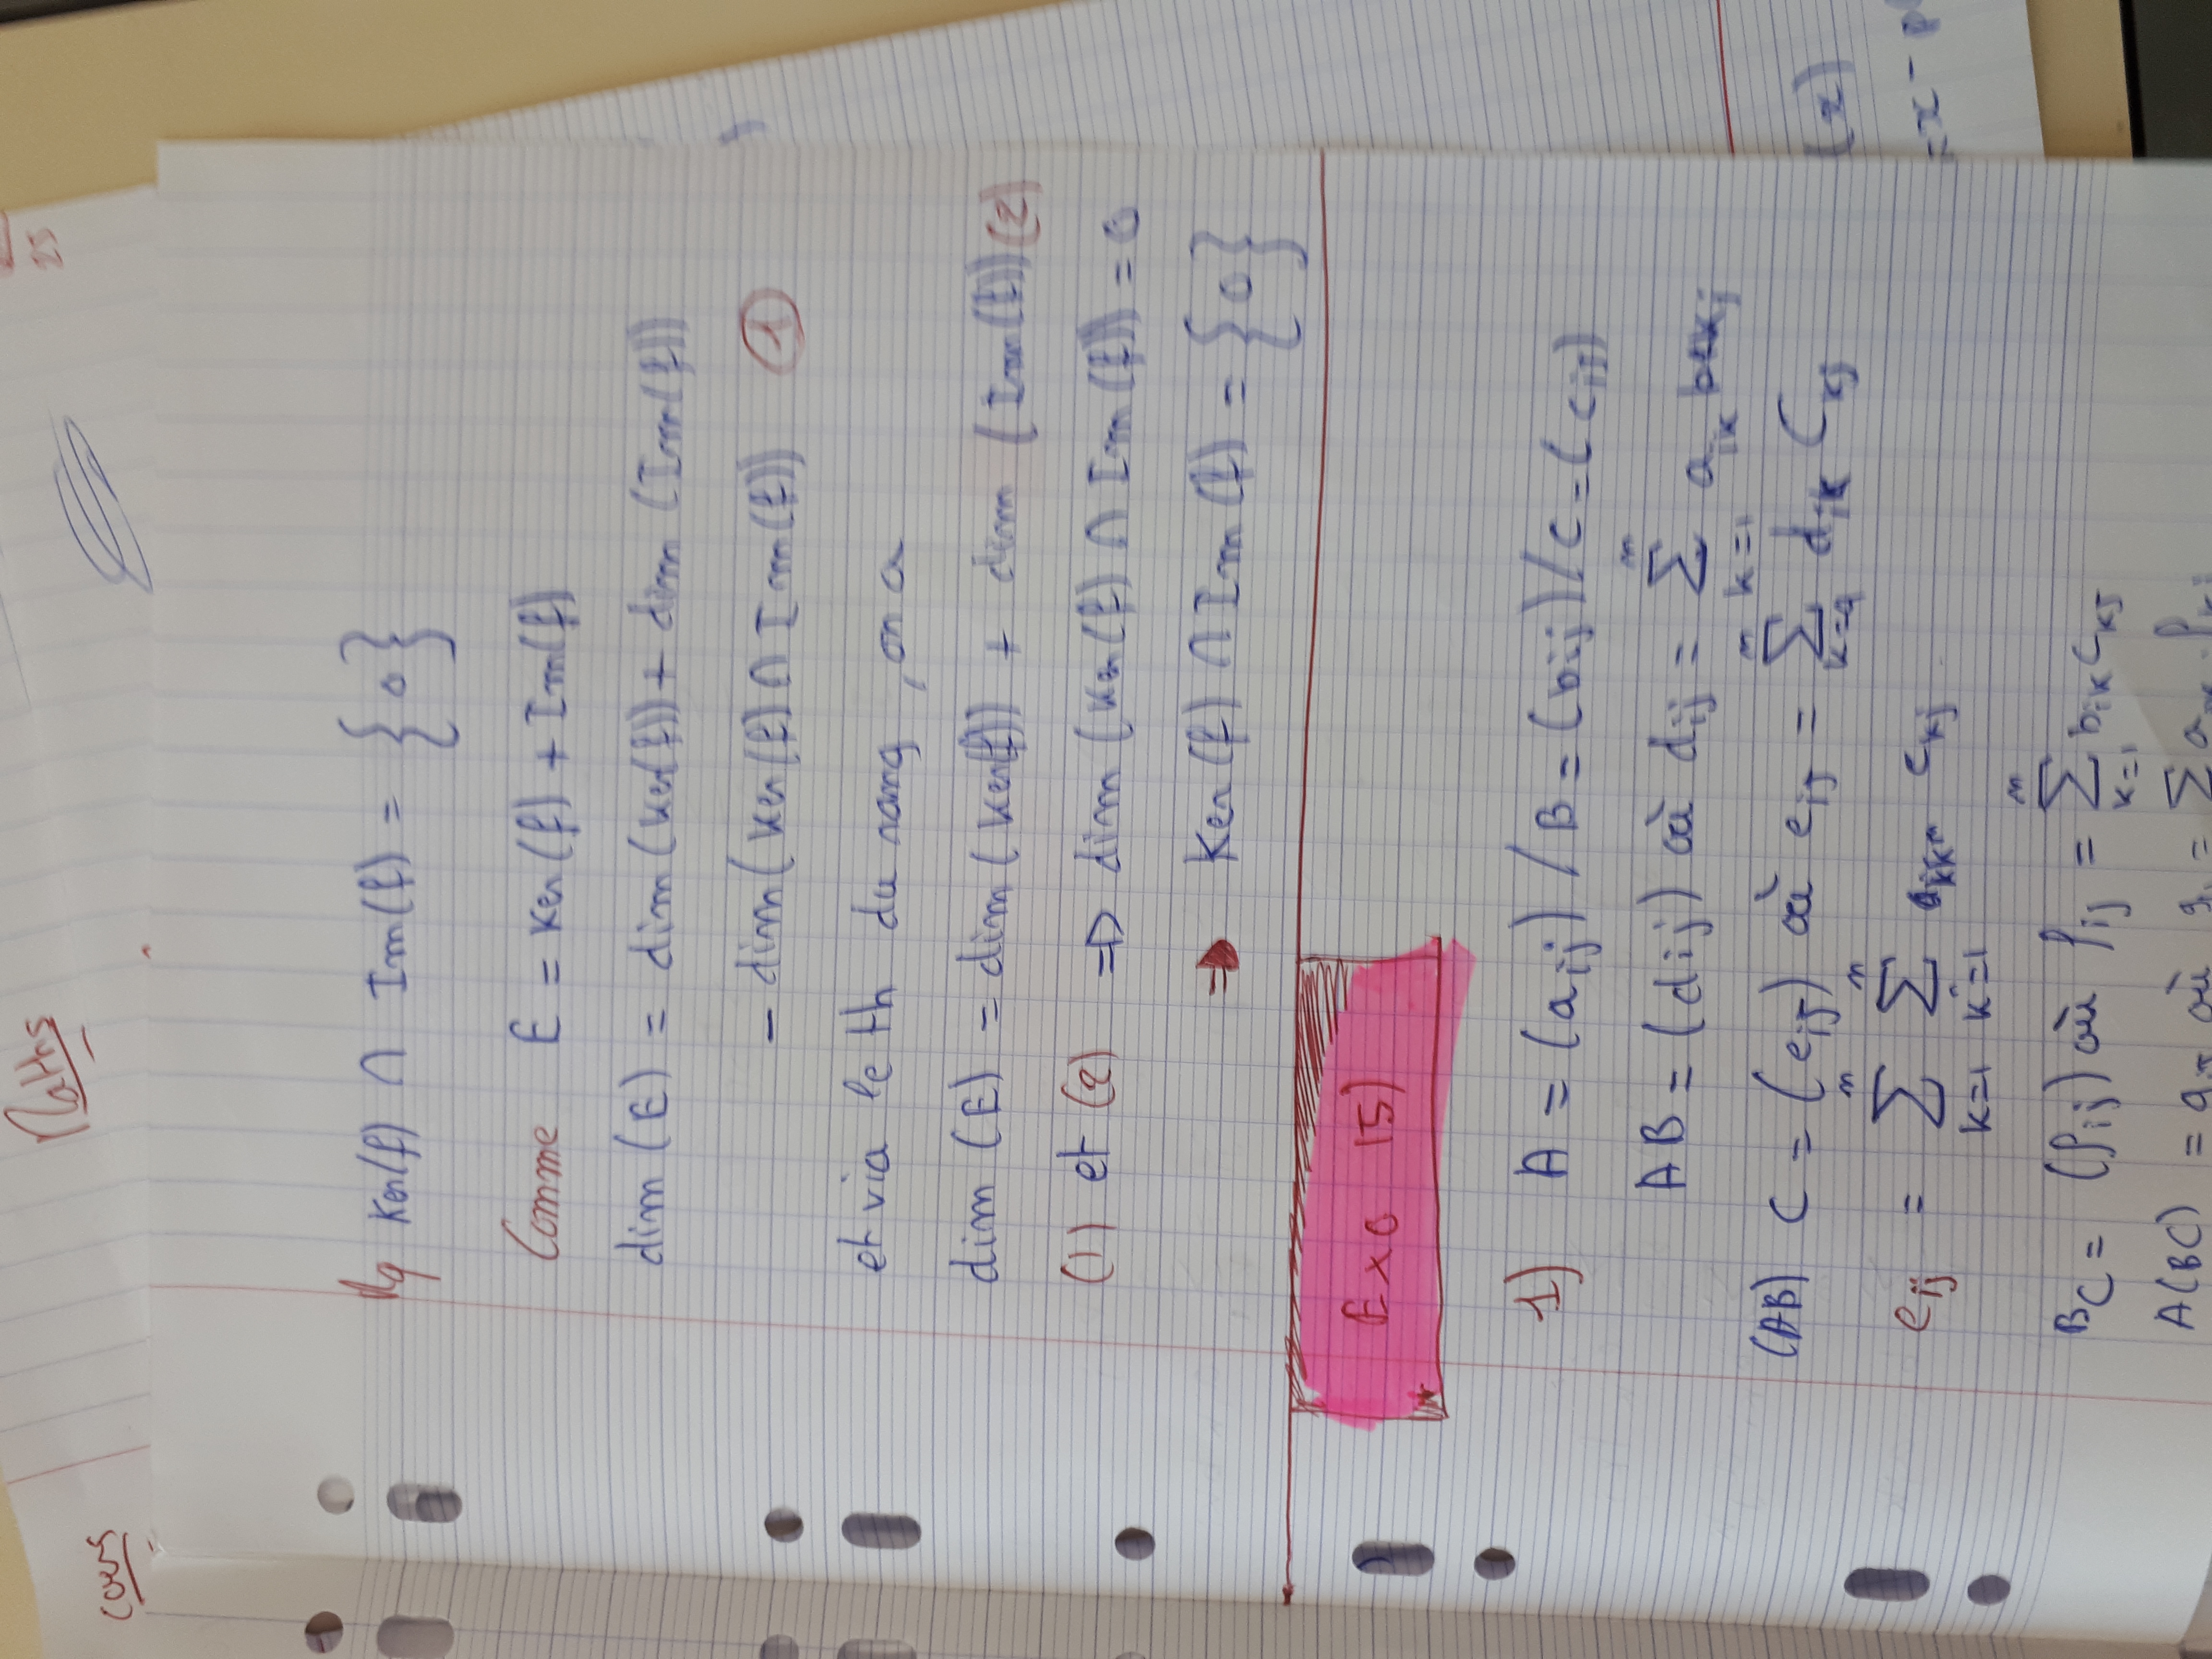 Cours
Maths
25
Mq Ker(f) ∩ Im(f) = {0}
Comme E = Ker(f) + Im(f)
dim(E) = dim(Ker(f)) + dim(Im(f))
- dim(Ker(f) ∩ Im(f)) ①
et via le th du rang, on a
dim(E) = dim(Ker(f)) + dim(Im(f)) (2)
(1) et (2) ⇒ dim(Ker(f) ∩ Im(f)) = 0
⇒ Ker(f) ∩ Im(f) = {0}
Exo 15)
1) A = (aij) / B = (bij) / C = (cij)
AB = (dij) où dij = ∑_{k=1}^{n} aik bkj
(AB) C = (eij) où eij = ∑_{k=1}^{n} dik Ckj
eij = ∑_{k=1}^{n} ∑_{k'=1}^{n} ckj
BC = (fij) où fij = ∑_{k=1}^{n} bik Ckj
A(BC) = où = ∑
(x)
= x - p